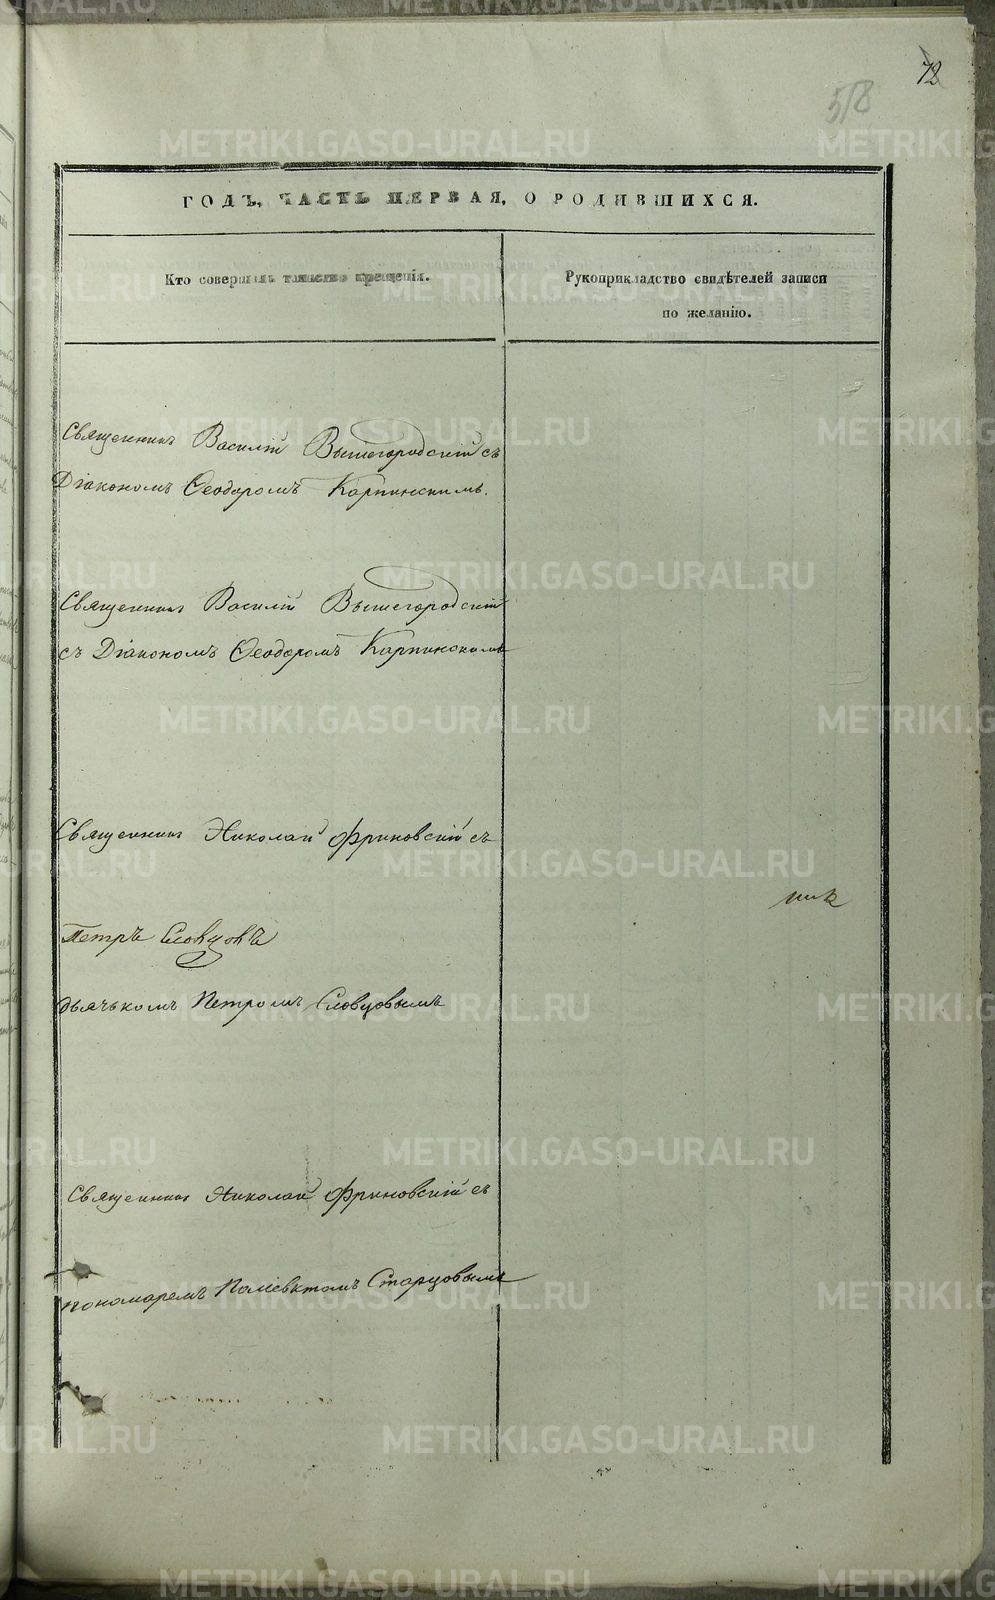 72
518
ГОДЪ, ЧАСТЬ ПЕРВАЯ, О РОДИВШИХСЯ.
Кто совершалъ таинство крещенія.
Рукоприкладство свидѣтелей записи
по желанію.
Священникъ Василій Вышегородскій съ
Діакономъ Ѳеодоромъ Карпинскимъ.
Священникъ Василій Вышегородскій
съ Діакономъ Ѳеодоромъ Карпинскимъ
Священникъ Николай Фриновскій съ
Петръ Словцовъ
дьячькомъ Петромъ Словцовымъ
Священникъ Николай Фриновскій съ
пономаремъ Поліевктомъ Старцовымъ
METRIKI.GASO-URAL.RU